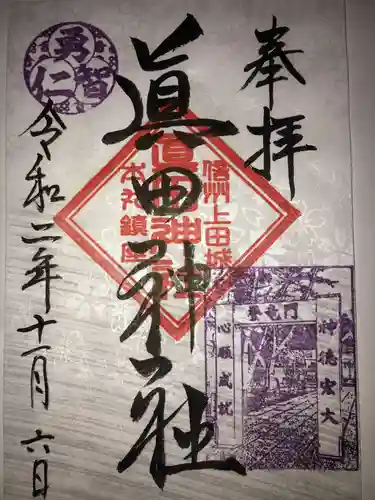 奉拝
眞田神社
令和二年十一月六日
勇
智
仁
信州上田城
本丸鎮座
眞田神社
神徳宏大
心願成就